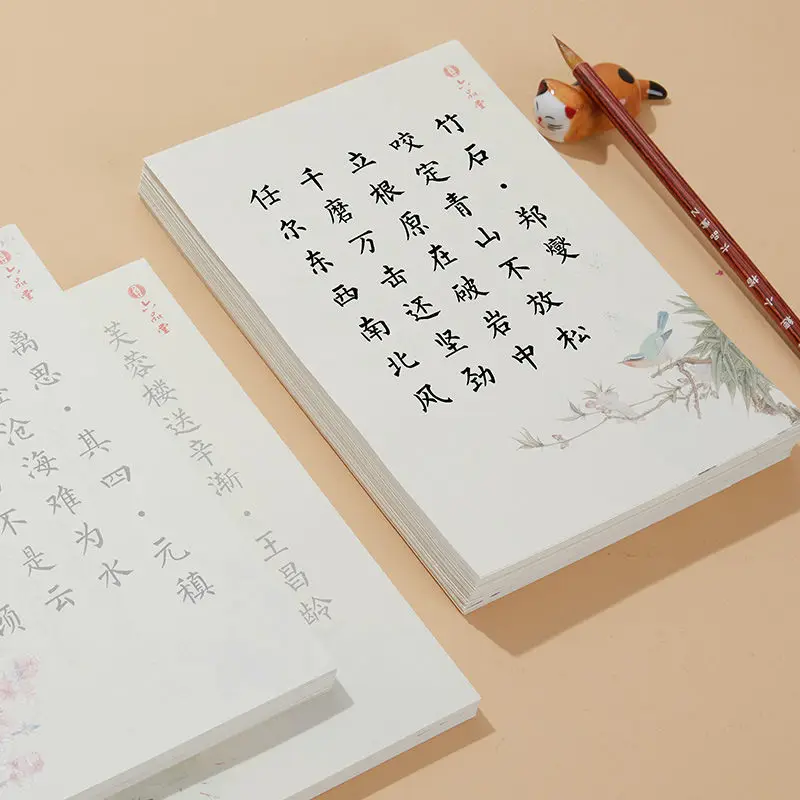 六品堂
竹石·郑燮
咬定青山不放松
立根原在破岩中
千磨万击还坚劲
任尔东西南北风
六品堂
芙蓉楼送辛渐·王昌龄
六品堂
离思·其四·元稹
沧海难为水
不是云
小楷